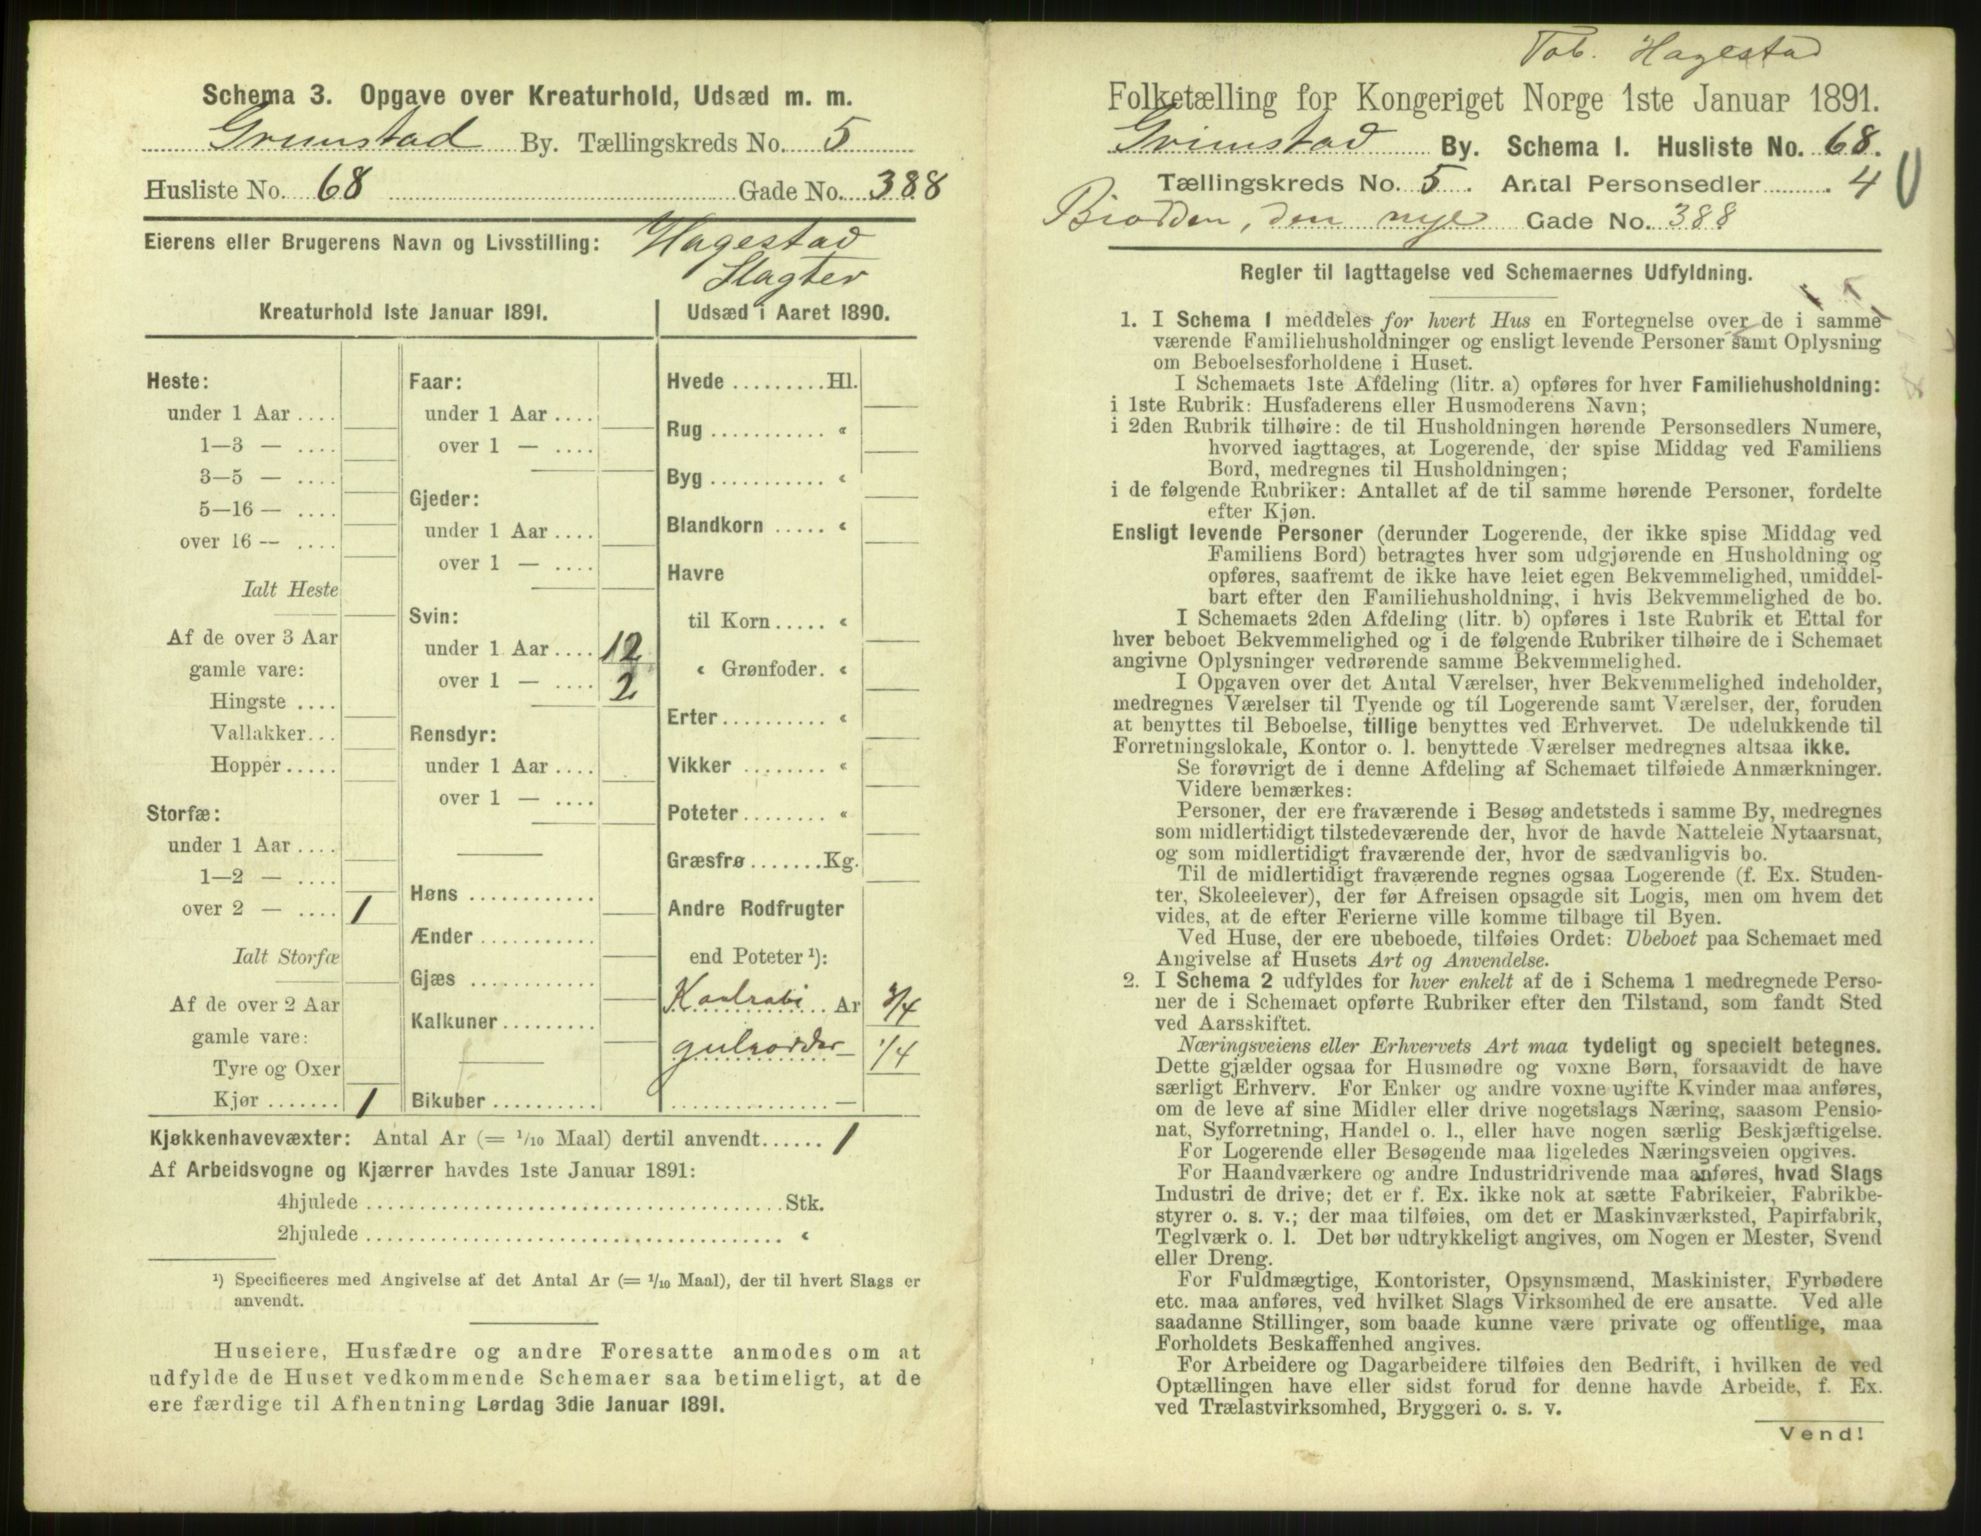 Schema 3. Opgave over Kreaturhold, Udsæd m. m.
Grimstad By. Tællingskreds No. 5
Husliste No. 68 Gade No. 388
Eierens eller Brugerens Navn og Livsstilling: Hagestad
Slagter
Kreaturhold 1ste Januar 1891.
Heste:
under 1 Aar ....
1—3 — ....
3—5 — ....
5—16 — ....
over 16 — ....
Ialt Heste
Af de over 3 Aar
gamle vare:
Hingste ....
Vallakker...
Hopper .....
Storfæ:
under 1 Aar ....
1—2 — ....
over 2 — .... 1
Ialt Storfæ
Af de over 2 Aar
gamle vare:
Tyre og Oxer
Kjør ....... 1
Faar:
under 1 Aar ....
over 1 — ....
Gjeder:
under 1 Aar ....
over 1 — ....
Svin:
under 1 Aar .... 12
over 1 — .... 2
Rensdyr:
under 1 Aar ....
over 1 — ....
Høns ............
Ænder ...........
Gjæs ............
Kalkuner .........
Bikuber ..........
Udsæd i Aaret 1890.
Hvede .........Hl.
Rug ........... «
Byg ........... «
Blandkorn ..... «
Havre
til Korn ..... «
« Grønfoder. «
Erter .......... «
Vikker ........ «
Poteter ........ «
Græsfrø .......Kg.
Andre Rodfrugter
end Poteter ¹):
Kaalrabi Ar 3/4
gulrødder — 1/4
—
Kjøkkenhavevæxter: Antal Ar (= 1/10 Maal) dertil anvendt ...... 1
Af Arbeidsvogne og Kjærrer havdes 1ste Januar 1891:
4hjulede ........................................Stk.
2hjulede ........................................ «
¹) Specificeres med Angivelse af det Antal Ar (= 1/10 Maal), der til hvert Slags er
anvendt.
Huseiere, Husfædre og andre Foresatte anmodes om at
udfylde de Huset vedkommende Schemaer saa betimeligt, at de
ere færdige til Afhentning Lørdag 3die Januar 1891.
Tob. Hagestad
Folketælling for Kongeriget Norge 1ste Januar 1891.
Grimstad By. Schema I. Husliste No. 68.
Tællingskreds No. 5. Antal Personsedler 4
Biodden, den nye Gade No. 388
Regler til Iagttagelse ved Schemaernes Udfyldning.
1. I Schema I meddeles for hvert Hus en Fortegnelse over de i samme
værende Familiehusholdninger og ensligt levende Personer samt Oplysning
om Beboelsesforholdene i Huset.
I Schemaets 1ste Afdeling (litr. a) opføres for hver Familiehusholdning:
i 1ste Rubrik: Husfaderens eller Husmoderens Navn;
i 2den Rubrik tilhøire: de til Husholdningen hørende Personsedlers Numere,
hvorved iagttages, at Logerende, der spise Middag ved Familiens
Bord, medregnes til Husholdningen;
i de følgende Rubriker: Antallet af de til samme hørende Personer, fordelte
efter Kjøn.
Ensligt levende Personer (derunder Logerende, der ikke spise Middag ved
Familiens Bord) betragtes hver som udgjørende en Husholdning og
opføres, saafremt de ikke have leiet egen Bekvemmelighed, umiddel-
bart efter den Familiehusholdning, i hvis Bekvemmelighed de bo.
I Schemaets 2den Afdeling (litr. b) opføres i 1ste Rubrik et Ettal for
hver beboet Bekvemmelighed og i de følgende Rubriker tilhøire de i Schemaet
angivne Oplysninger vedrørende samme Bekvemmelighed.
I Opgaven over det Antal Værelser, hver Bekvemmelighed indeholder,
medregnes Værelser til Tyende og til Logerende samt Værelser, der, foruden
at benyttes til Beboelse, tillige benyttes ved Erhvervet. De udelukkende til
Forretningslokale, Kontor o. l. benyttede Værelser medregnes altsaa ikke.
Se forøvrigt de i denne Afdeling af Schemaet tilføiede Anmærkninger.
Videre bemærkes:
Personer, der ere fraværende i Besøg andetsteds i samme By, medregnes
som midlertidigt tilstedeværende der, hvor de havde Natteleie Nytaarsnat,
og som midlertidigt fraværende der, hvor de sædvanligvis bo.
Til de midlertidigt fraværende regnes ogsaa Logerende (f. Ex. Studen-
ter, Skoleelever), der før Afreisen opsagde sit Logis, men om hvem det
vides, at de efter Ferierne ville komme tilbage til Byen.
Ved Huse, der ere ubeboede, tilføies Ordet: Ubeboet paa Schemaet med
Angivelse af Husets Art og Anvendelse.
2. I Schema 2 udfyldes for hver enkelt af de i Schema 1 medregnede Perso-
ner de i Schemaet opførte Rubriker efter den Tilstand, som fandt Sted
ved Aarsskiftet.
Næringsveiens eller Erhvervets Art maa tydeligt og specielt betegnes.
Dette gjælder ogsaa for Husmødre og voxne Børn, forsaavidt de have
særligt Erhverv. For Enker og andre voxne ugifte Kvinder maa anføres,
om de leve af sine Midler eller drive nogetslags Næring, saasom Pensio-
nat, Syforretning, Handel o. l., eller have nogen særlig Beskjæftigelse.
For Logerende eller Besøgende maa ligeledes Næringsveien opgives.
For Haandværkere og andre Industridrivende maa anføres, hvad Slags
Industri de drive; det er f. Ex. ikke nok at sætte Fabrikeier, Fabrikbe-
styrer o. s. v.; der maa tilføies, om det er Maskinværksted, Papirfabrik,
Teglværk o. l. Det bør udtrykkeligt angives, om Nogen er Mester, Svend
eller Dreng.
For Fuldmægtige, Kontorister, Opsynsmænd, Maskinister, Fyrbødere
etc. maa anføres, ved hvilket Slags Virksomhed de ere ansatte. Ved alle
saadanne Stillinger, som baade kunne være private og offentlige, maa
Forholdets Beskaffenhed angives.
For Arbeidere og Dagarbeidere tilføies den Bedrift, i hvilken de ved
Optællingen have eller sidst forud for denne havde Arbeide, f. Ex.
ved Trælastvirksomhed, Bryggeri o. s. v.
Vend!